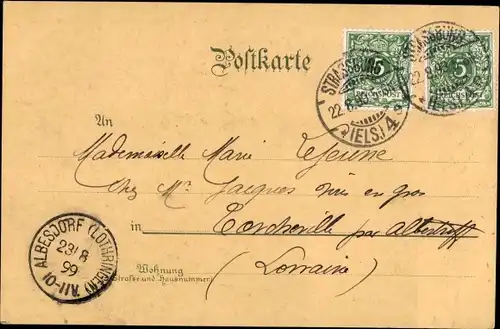 Postkarte
STRASSBURG
22.8.99
*(ELS.) 4 c
STRASSBURG
22.8.99
*(ELS.) 4 c
5
5
An
Mademoiselle Marie Lejeune
Chez Mr. Jacques vins en gros
in Torcheville par Albestroff
(Lorraine)
Wohnung
(Strasse und Hausnummer)
ALBESDORF (LOTHRINGEN)
23/8
99